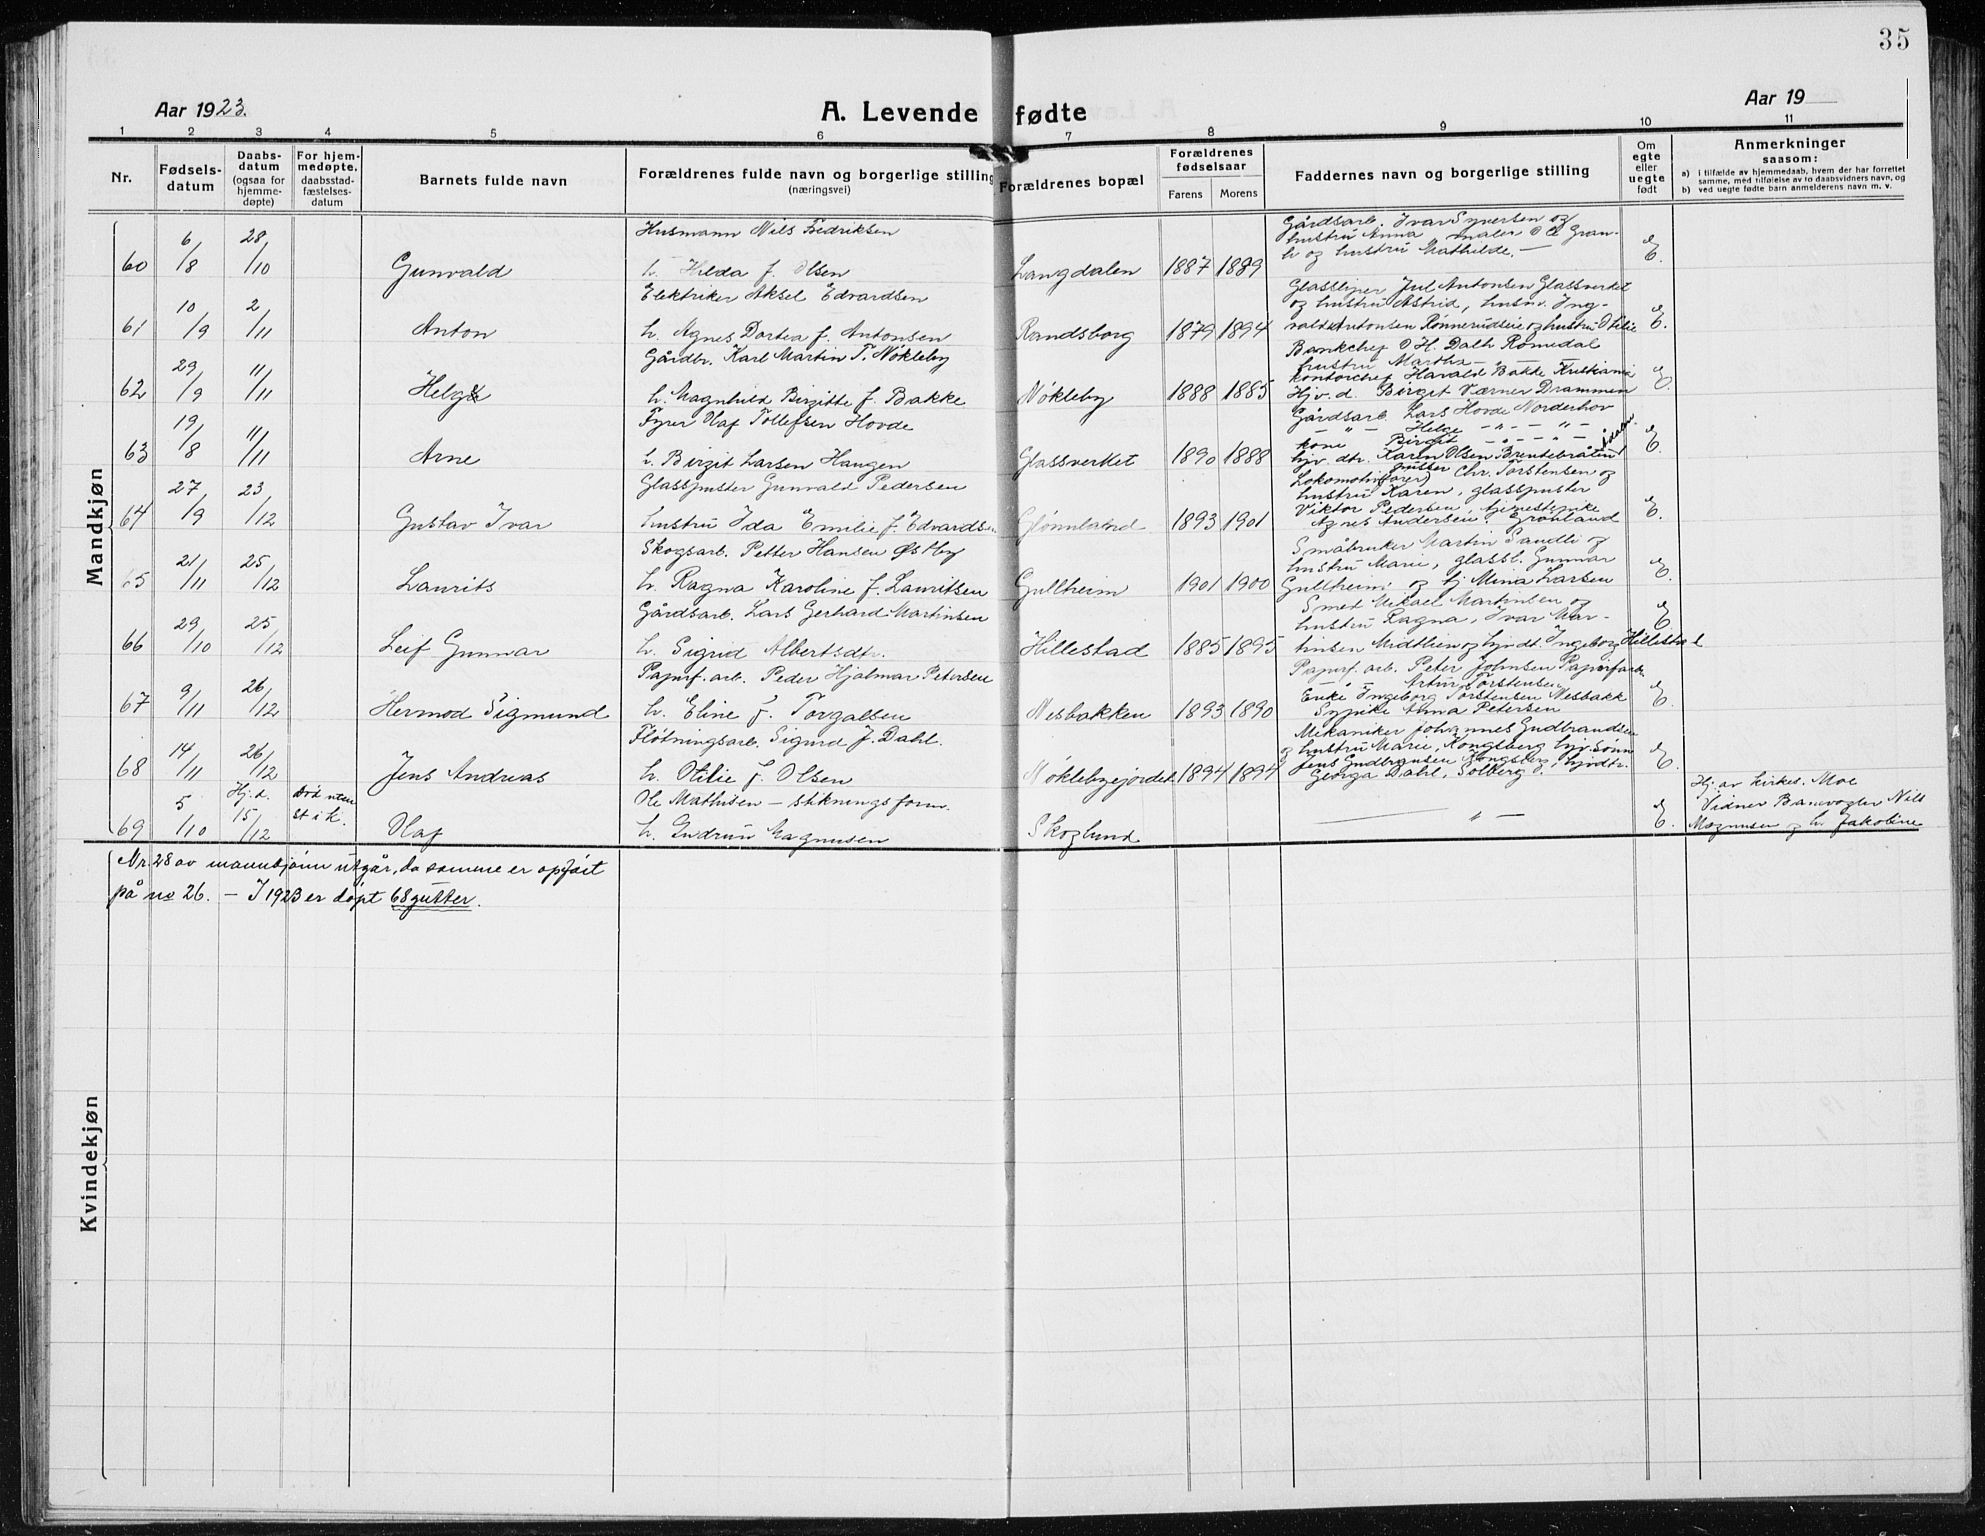 35
Aar 1923.
A. Levende fødte
Aar 19
1 2 3 4 5 6 7 8 9 10 11
Nr.
Fødsels-
datum
Daabs-
datum
(ogsaa for
hjemme-
døpte)
For hjem-
medøpte,
daabsstad-
fæstelses-
datum
Barnets fulde navn
Forældrenes fulde navn og borgerlige stilling
(næringsvei)
Forældrenes bopæl
Forældrenes
fødselsaar
Farens Morens
Faddernes navn og borgerlige stilling
Om
egte
eller
uegte
født
Anmerkninger
saasom:
a) i tilfælde av hjemmedaab, hvem der har forrettet
samme, med tilføielse av to daabsvidners navn, og
b) ved uegte fødte barn anmelderens navn m. v.
Mandkjøn
60 6/8 28/10 Gunvald
Husmann Nils Fredriksen
h. Hilda f. Olsen
Langdalen 1887 1889
Gårdsarb. Ivar Syversen og
hustru Anna maler O Gran-
og hustru Mathilde. —
E.
61 10/9 2/11 Anton
Elektriker Aksel Edvardsen
h. Agnes Dortea f. Antonsen
Randsborg 1879 1894
Glassliper Jul Antonsen Glassverket
og hustru Astrid, husm. Ing-
vald Antonsen Rønnerudseie og hustru Otilie
E.
62 29/9 11/11 Helge
Gårdbr. Karl Martin T. Nøkleby
h. Magnhild Birgitte f. Bakke
Nøkleby 1888 1885
Bankchef O H. Dalh Romedal
hustru Martha
kontorchef Harald Bakke Kristiania
Hjv. d. Birgit Værner Drammen
E.
63 19/8 11/11 Arne
Fyrer Olaf Tollefsen Hovde
h. Birgit Larsen Haugen
Glassverket 1890 1888
Gårdsarb. Lars Hovde Norderhov
— " — Helge — " — " —
kone Birgit — " — " —
hjv. dtr. Karen Olsen Brentebråten Ådalen
E.
64 27/9 23/12 Gustav Ivar
Glasspuster Gunvald Pedersen
hustru Ida Emilie f. Edvardsen
Grønnland 1893 1901
Lokomotiv(fører) pusser Chr. Torstensen og
hustru Karen, glasspuster
Viktor Pedersen, tjenestepike
Agnes Andersen. Grønland
E.
65 21/11 25/12 Laurits
Skogsarb. Petter Hansen Østby
h. Ragna Karoline f. Lauritsen
Gullheim 1901 1900
Småbruker Martin Sandli og
hustru Marie, glassl. Gunnar
Gullheim; og tj Mina Larsen
E.
66 29/10 25/12 Leif Gunnar
Gårdsarb. Lars Gerhard Martinsen
h. Sigrid Albertsdtr.
Hillestad 1885 1895
Smed Mikael Martinsen og
hustru Ragna, Ivar Mar-
tinsen Midtlien og hjvdt. Ingeborg Hillestad
E.
67 9/11 26/12 Hermod Sigmund
Papirf. arb. Peder Hjalmar Petersen
h. Eline f. Torgalsen
Nesbakken 1893 1890
Papirf. arb. Peter Johnsen Papirfarb.
Artur Torstensen
Enke Ingeborg Torstensen Nesbakk
Sypike Anna Petersen
E.
68 14/11 26/12 Jens Andreas
Fløtningsarb. Sigurd J. Dahl.
h. Otilie f. Olsen
Nøklebyejordet. 1894 1894
Mekaniker Johannes Gudbrandsen
og hustru Marie, Kongsberg hjv sønn
Jens Gudbransen Kongsberg, hjvdtr.
Georga Dahl, Solberg.
E.
69 5/10 Hj.d. 15/12 Død uten
st i k.
Olaf
Ole Mathisen — stikningsform.
h. Gudrun Magnusen
Skoglund
— " —
E.
Hj. av kirkes. Moe
Vidner Banevogter Nils
Magnusen og h. Jakobine
Nr. 28 av mannkjønn utgår, da samme er opført
på no 26. — I 1923 er døpt 68 gutter.
Kvindekjøn